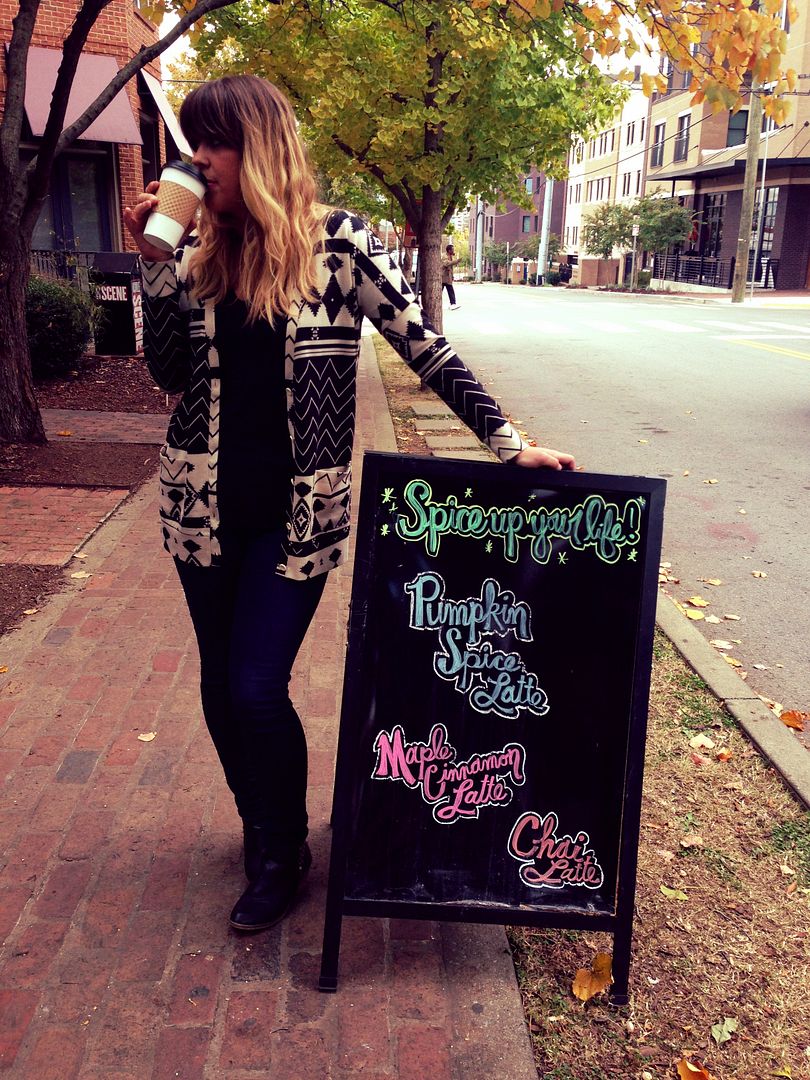 SCENE
Spice up your life!
Pumpkin
Spice
Latte
Maple
Cinnamon
Latte
Chai
Latte